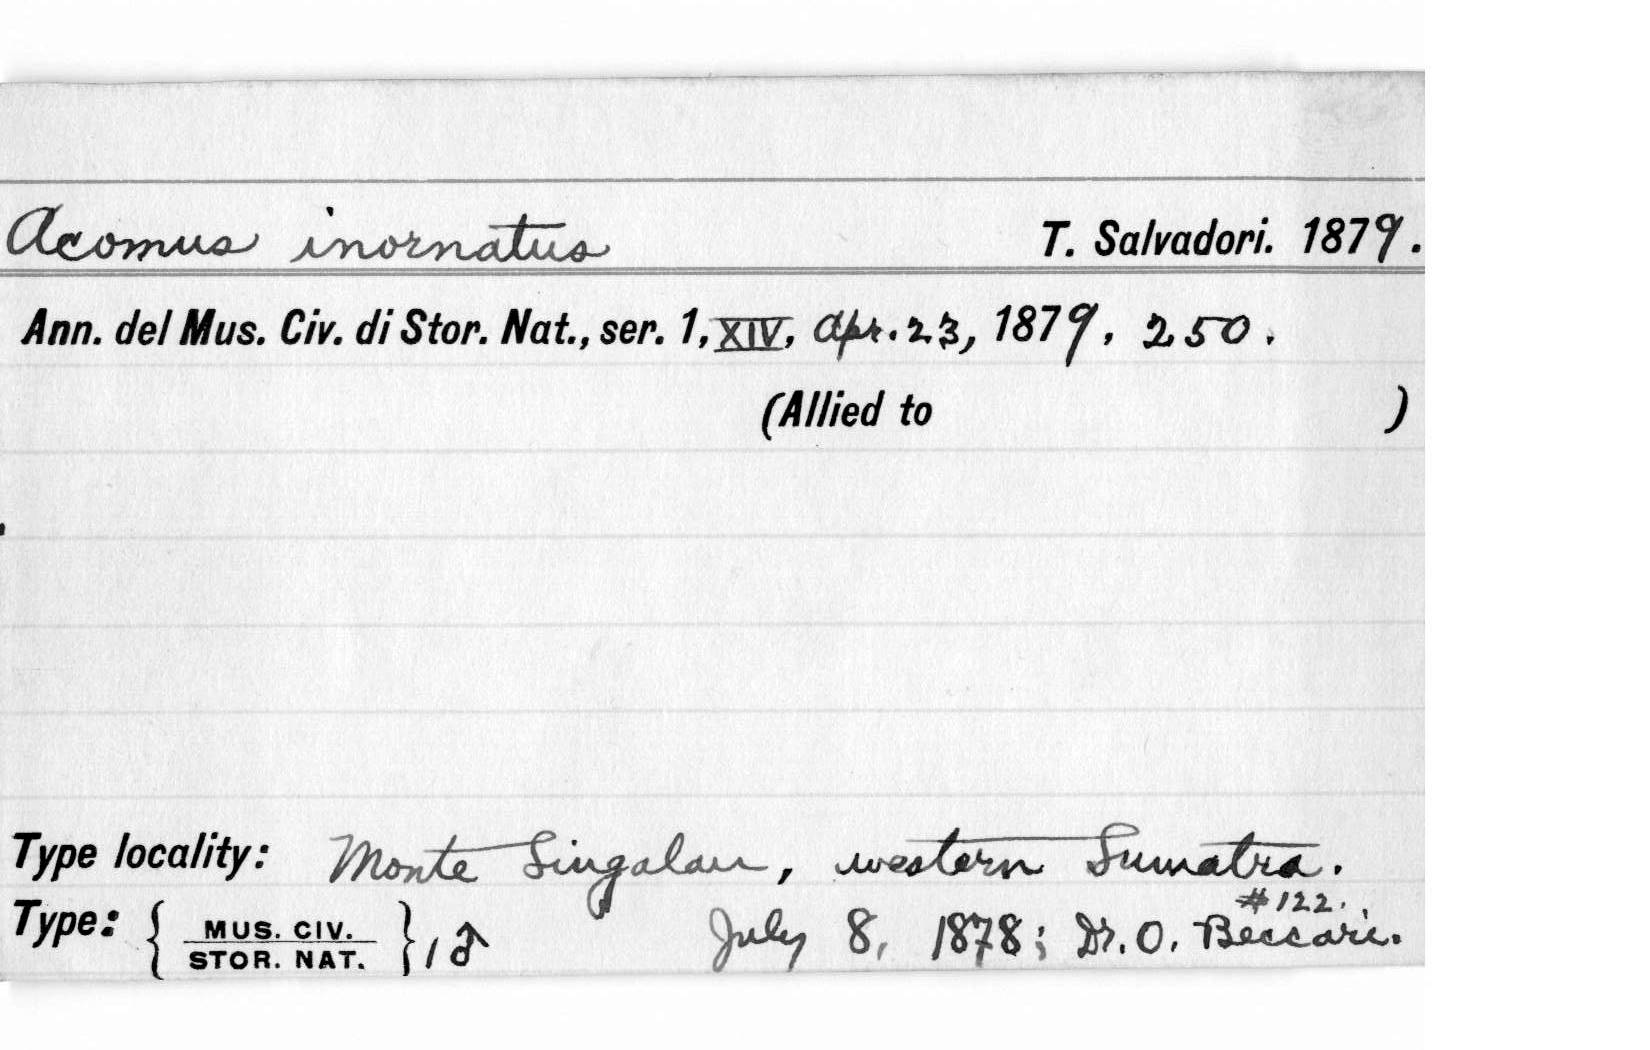 Acomus inornatus T. Salvadori. 1879.
Ann. del Mus. Civ. di Stor. Nat., ser. 1, XIV, Apr. 23, 1879, 250.
(Allied to )
Type locality: Monte Singalan, western Sumatra.
#122.
Type: { MUS. CIV. STOR. NAT. } 1♂ July 8, 1878; Dr. O. Beccari.